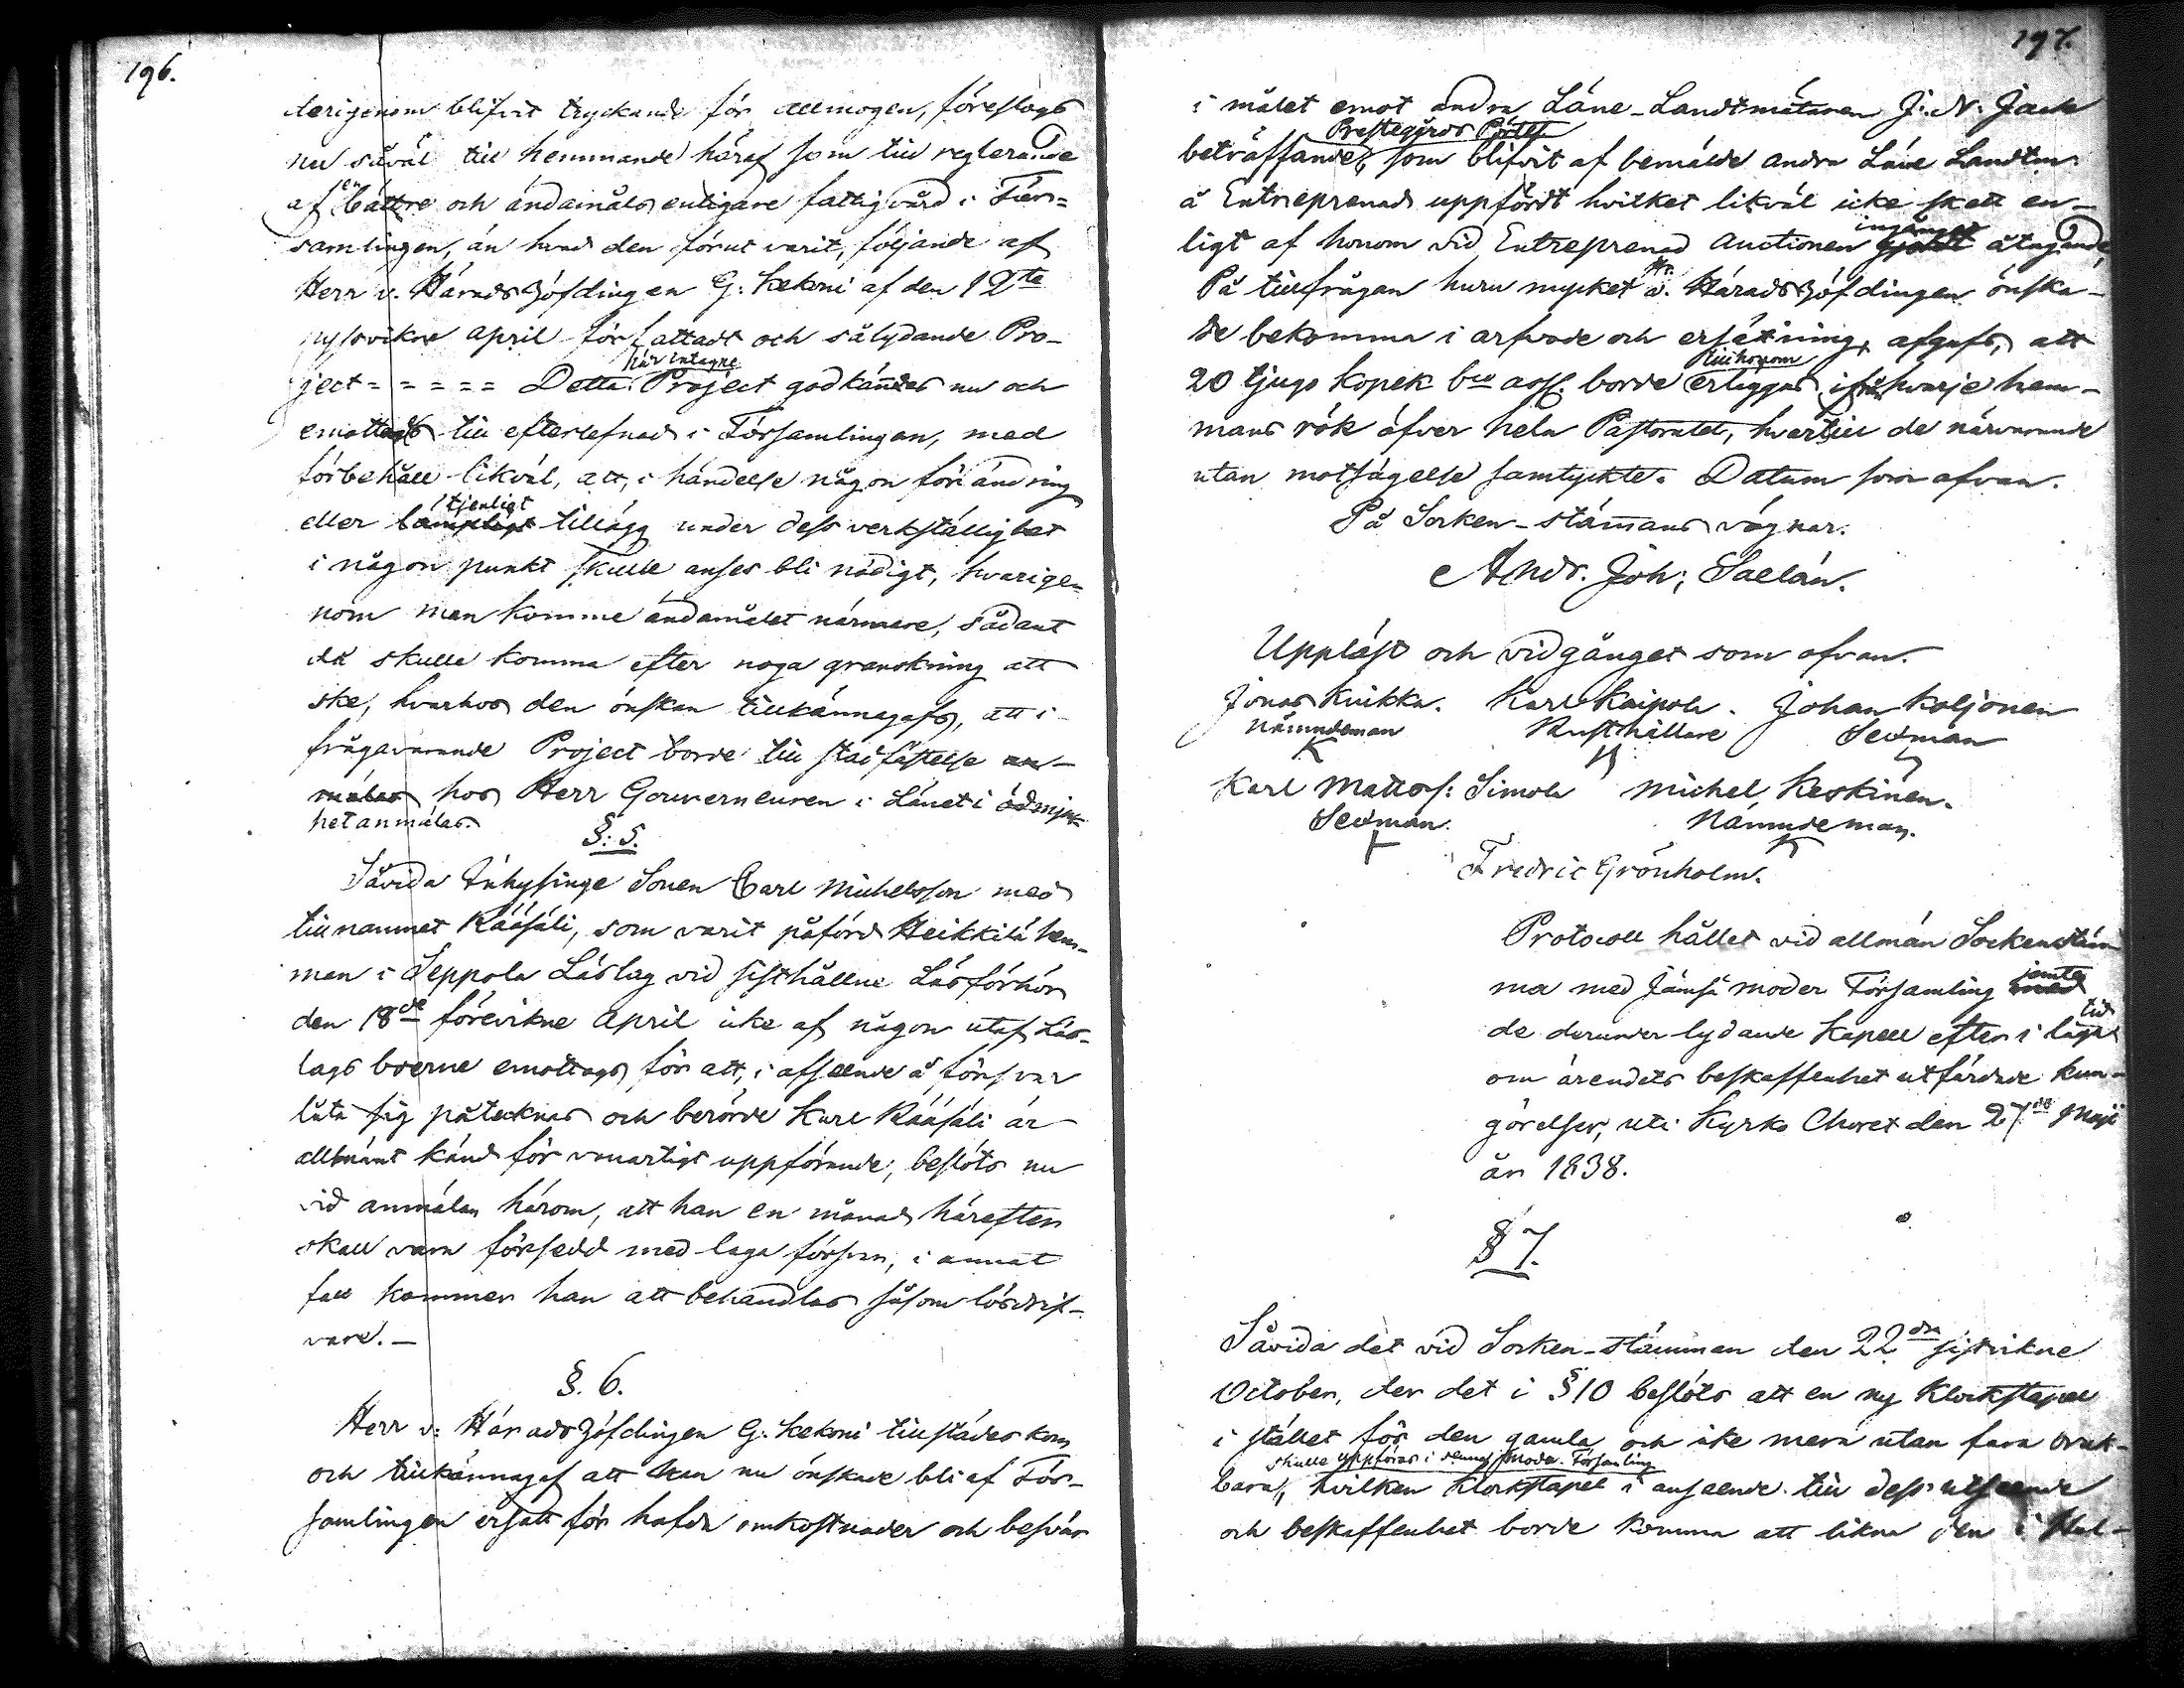 196.
derigenom blifvit tryckande för allmogen, föreslogs
nu såväl till hemmande häraf som till reglerande
af en bättre och ändamåls enligare fattigvård i För=
samlingen, än hvad den förut varit, följande af
Herr v. Häradshöfdingen G. Kekoni af den 12te
nyssvikne april författadt och sålydande Pro-
ject = = = = = Detta här intagne Project godkändes nu och
emottogs till efterlefnad i Församlingen, med
förbehåll likväl, att, i händelse någon förändring
eller lämpligt tjenligt tillägg under dess verkställighet
i någon punkt skulle anses bli nödigt, hvarige=
nom man komme ändamålet närmare, sådant
då skulle komma efter noga granskning att
ske, hvarhos den önskan tillkännagafs, att i
frågavarande Project borde till stadfästelse an-
mälas hos Herr Gouverneuren i Länet i ödmjuk
het anmälas.
§. 5.
Såvida Inhysinge Sonen Carl Michelsson med
tillnamnet Rääsäli, som varit påförd Heikkilä hem-
man i Seppola Läslag vid sisthållne Läsförhör
den 18de förevikne April icke af någon utaf Läs-
lags boerne emottogs för att, i afseende å försvar
låta sig påtecknas och berörde Karl Rääsäli är
allmänt känd för vanartigt uppförande, beslöts nu
vid anmälan härom, att han en månad härefter
skall vara försedd med laga försvar, i annat
fall kommer han att behandlas såsom lösdrif-
vare. —
§. 6.
Herr v. Häradshöfdingen G. Kekoni tillstädes kom
och tillkännagaf att han nu önskade bli af För-
samlingen ersatt för hafda omkostnader och besvär
197.
i målet emot andra Läne-Landtmätaren J. N. Jack
beträffande Prestegårds som blifvit af bemälde andra Läne Landtm:
å Entreprenad uppfördt hvilket likväl icke skett en-
ligt af honom vid Entreprenad Auctionen gjordt ingånget åtagande,
På tillfrågan huru mycket Hr v. Häradshöfdingen önska-
de bekomma i arfvode och ersättning, afgafs, att
20 tjugo Kopek bco ass. borde till honom erläggas ifrån hvarje hem-
mans rök öfver hela Pastoratet, hvartill de närvarande
utan motsägelse samtyckte. Datum som ofvan.
På Socken-stämmans vägnar.
Andr. Joh; Saelán.
Uppläst och vidgånget som ofvan.
Jonas Kuikka. Karl Kaipola. Johan Koljonen
Nämndeman Rusthållare Sexman
Karl Mattss: Simola Michel Keskinen.
Sexman. Nämndeman.
Fredric Grönholm.
Protocoll hållet vid allmän Sockenstäm
ma med Jämsä moder Församling med jemte
de derunder lydande Kapell efter i laga tid
om ärendets beskaffenhet utfärdade kun-
görelser, uti Kyrko Choret den 27de Maji
år 1838.
§ 7.
Såvida det vid Socken-stämman den 22dra sistvikne
October, der det i § 10 beslöts att en ny Klockstapel
i stället för den gamla och icke mera utan fara bruk-
bara, skulle uppföras i denna Moder Församling hvilken Klockstapel i anseende till dess utseende
och beskaffenhet borde komma att likna den i